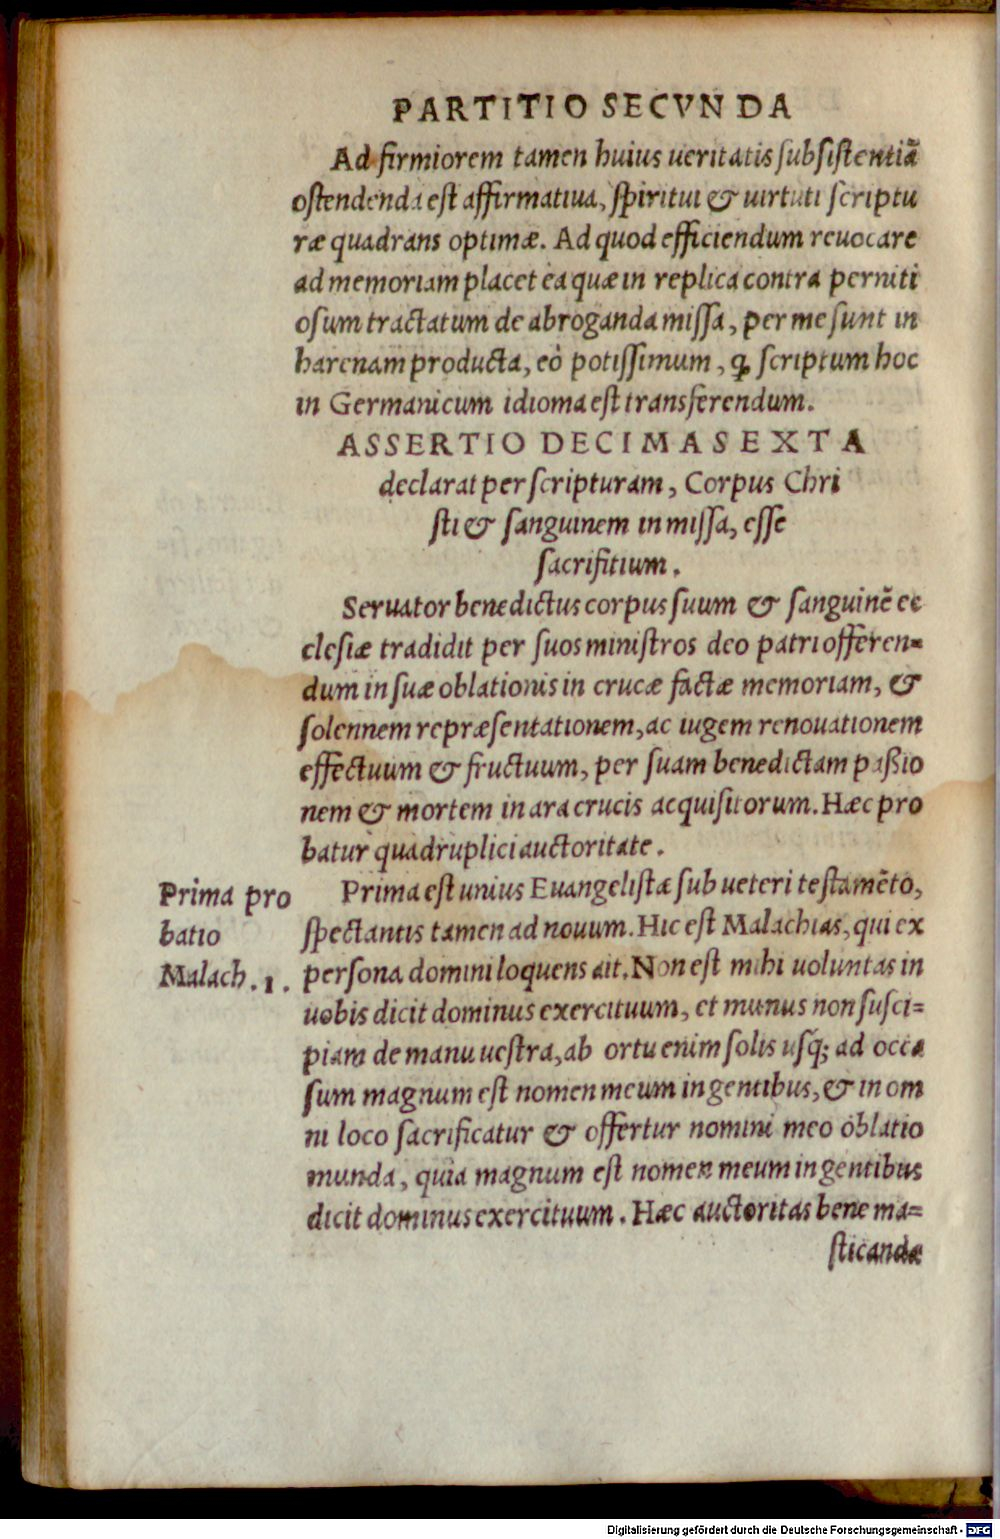 PARTITIO SECVNDA
Ad firmiorem tamen huius ueritatis subsistentiã
ostendenda est affirmatiua, spiritui & uirtuti scriptu
ræ quadrans optimæ. Ad quod efficiendum reuocare
ad memoriam placet ea quæ in replica contra perniti
osum tractatum de abroganda missa, per me sunt in
harenam producta, eò potissimum, ꝙ scriptum hoc
in Germanicum idioma est transferendum.
ASSERTIO DECIMASEXTA
declarat per scripturam, Corpus Chri
sti & sanguinem in missa, esse
sacrifitium.
Seruator benedictus corpus suum & sanguinẽ ec
clesiæ tradidit per suos ministros deo patri offeren-
dum in suæ oblationis in crucæ factæ memoriam, &
solennem repræsentationem, ac iugem renouationem
effectuum & fructuum, per suam benedictam paßio
nem & mortem in ara crucis acquisitorum. Hæc pro
batur quadruplici auctoritate.
Prima pro
batio
Malach. 1.
Prima est unius Euangelistæ sub ueteri testamẽto,
spectantis tamen ad nouum. Hic est Malachias, qui ex
persona domini loquens ait. Non est mihi uoluntas in
uobis dicit dominus exercituum, et munus non susci-
piam de manu uestra, ab ortu enim solis usq; ad occa
sum magnum est nomen meum in gentibus, & in om
ni loco sacrificatur & offertur nomini meo oblatio
munda, quia magnum est nomen meum in gentibus
dicit dominus exercituum. Hæc auctoritas bene ma-
sticandæ
Digitalisierung gefördert durch die Deutsche Forschungsgemeinschaft - DFG